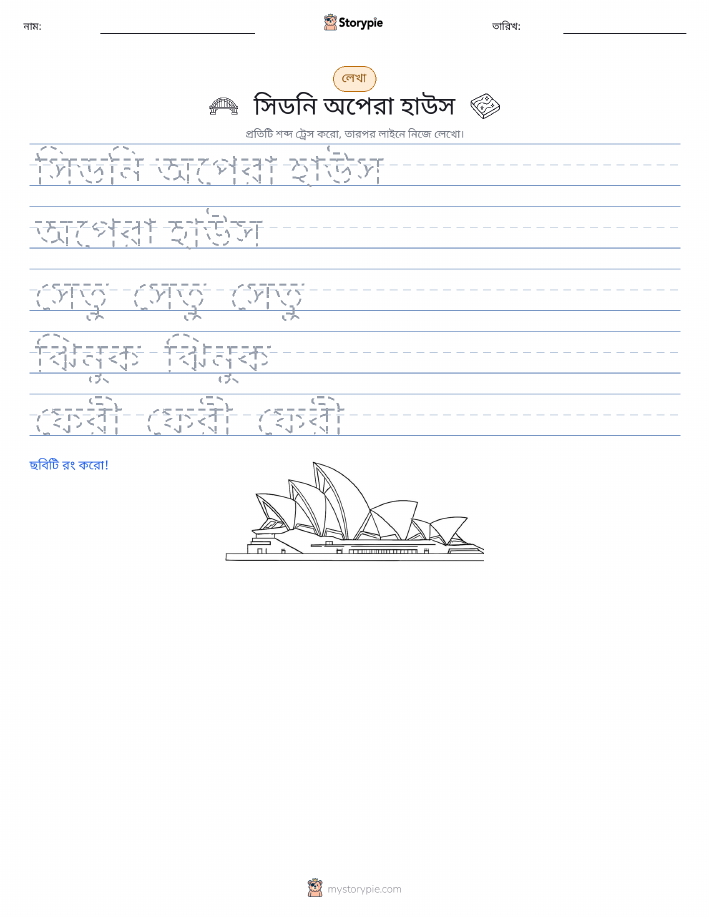 নাম:
Storypie
তারিখ:
লেখা
সিডনি অপেরা হাউস
প্রতিটি শব্দ ট্রেস করো, তারপর লাইনে নিজে লেখো।
সিডনি অপেরা হাউস
অপেরা হাউস
সেতু সেতু সেতু
ঝিনুক ঝিনুক
ফেরী ফেরী ফেরী
ছবিটি রং করো!
mystorypie.com